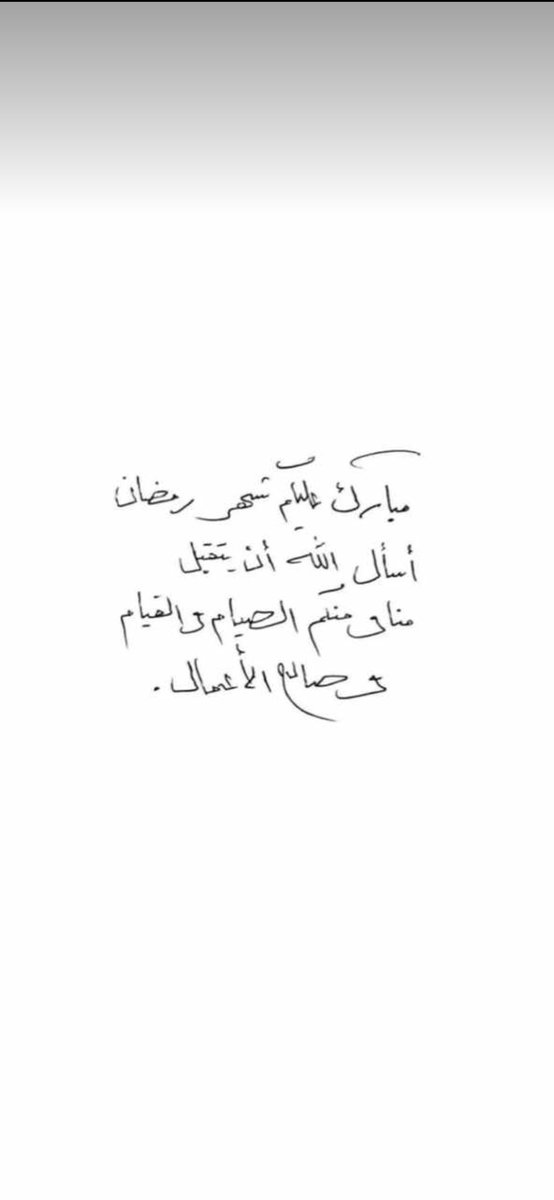 مبارك عليكم شهر رمضان
أسأل الله أن يتقبل
منا و منكم الصيام و القيام
و صالح الأعمال .